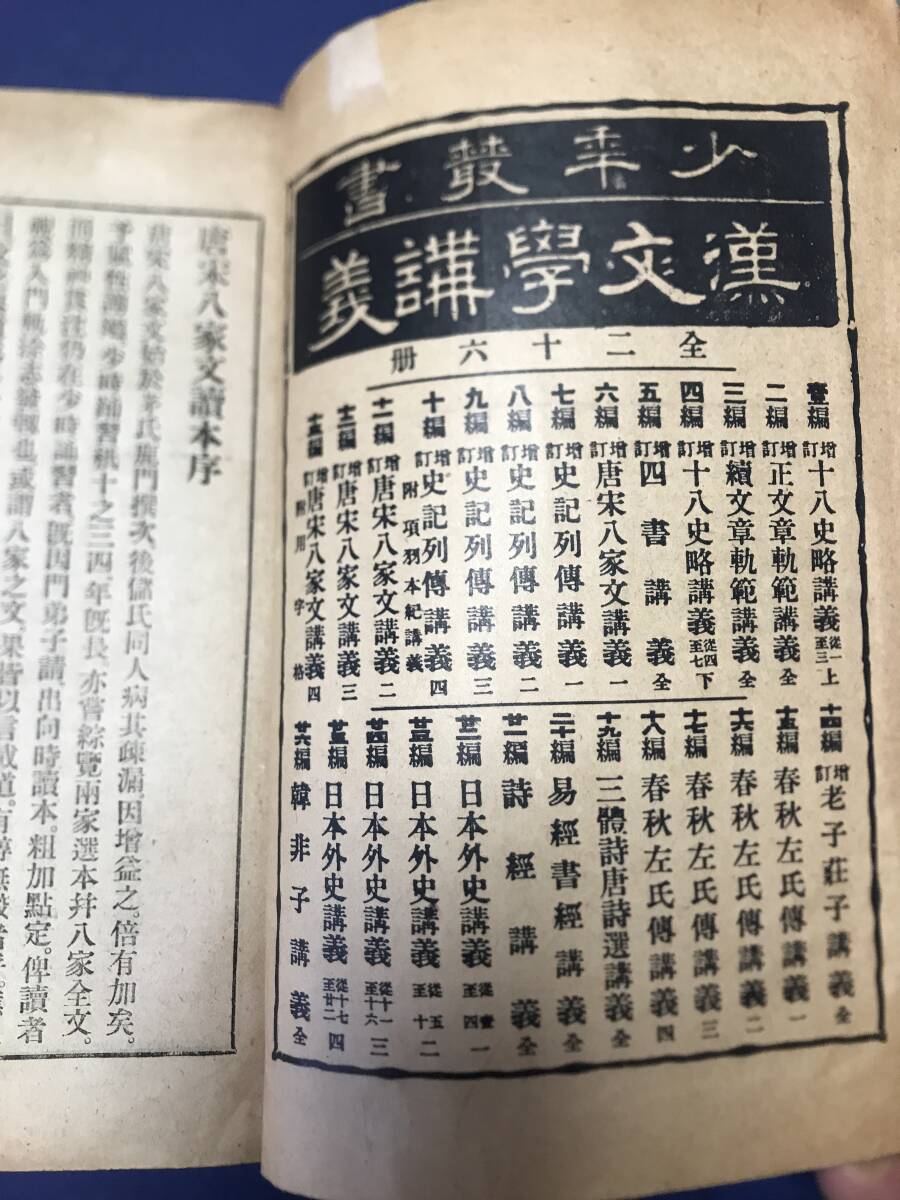 少年叢書
漢文學講義
全二十六册
壹編 增訂 十八史略講義 從一至三 上
二編 增訂 正文章軌範講義 全
三編 增訂 續文章軌範講義 全
四編 增訂 十八史略講義 從四至七 下
五編 增訂 四書講義 全
六編 增訂 唐宋八家文講義 一
七編 增訂 史記列傳講義 一
八編 增訂 史記列傳講義 二
九編 增訂 史記列傳講義 三
十編 增訂 史記列傳講義 四
附項羽本紀講義
十一編 增訂 唐宋八家文講義 二
十二編 增訂 唐宋八家文講義 三
十三編 增訂 唐宋八家文講義 四
附用字格
十四編 增訂 老子莊子講義 全
十五編 春秋左氏傳講義 一
十六編 春秋左氏傳講義 二
十七編 春秋左氏傳講義 三
十八編 春秋左氏傳講義 四
十九編 三體詩唐詩選講義 全
二十編 易經書經講義 全
廿一編 詩經講義 全
廿二編 日本外史講義 從壹至四 一
廿三編 日本外史講義 從五至十 二
廿四編 日本外史講義 從十一至十六 三
廿五編 日本外史講義 從十七至廿二 四
廿六編 韓非子講義 全
唐宋八家文讀本序
唐宋八家文始於茅氏鹿門撰次後儲氏同人病其疎漏因增益之。倍有加矣。
予賦性謭陋少時誦習祇十之三四年旣長、亦嘗綜覽兩家選本幷八家全文。
而精神貫注仍在少時誦習者。旣因門弟子請、出向時讀本。粗加點定。俾讀者
視爲入門軌塗志發軔也。或謂八家之文、果皆以言載道。有醇無駁者乎。